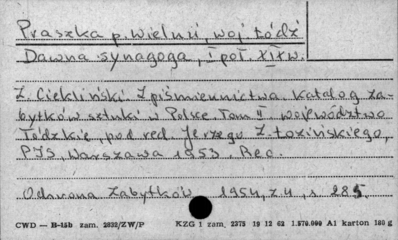 Praszka p. Wieluń, woj Łódź
Dawna synagoga, I poł. XIX w.
Z. Ciekliński Z piśmiennictwa. Katalog za-
bytków sztuki w Polsce Tom II województwo
Łódzkie, pod red Jerzego Z. Łozińskiego,
PIS, Warszawa 1953. Rec.
Ochrona Zabytków 1954, z. 4, s. 285.
CWD — H-15b zam. 2832/ZW/P KZG 1 zam. 2373 19 12 62 1.570.000 A1 karton 180 g